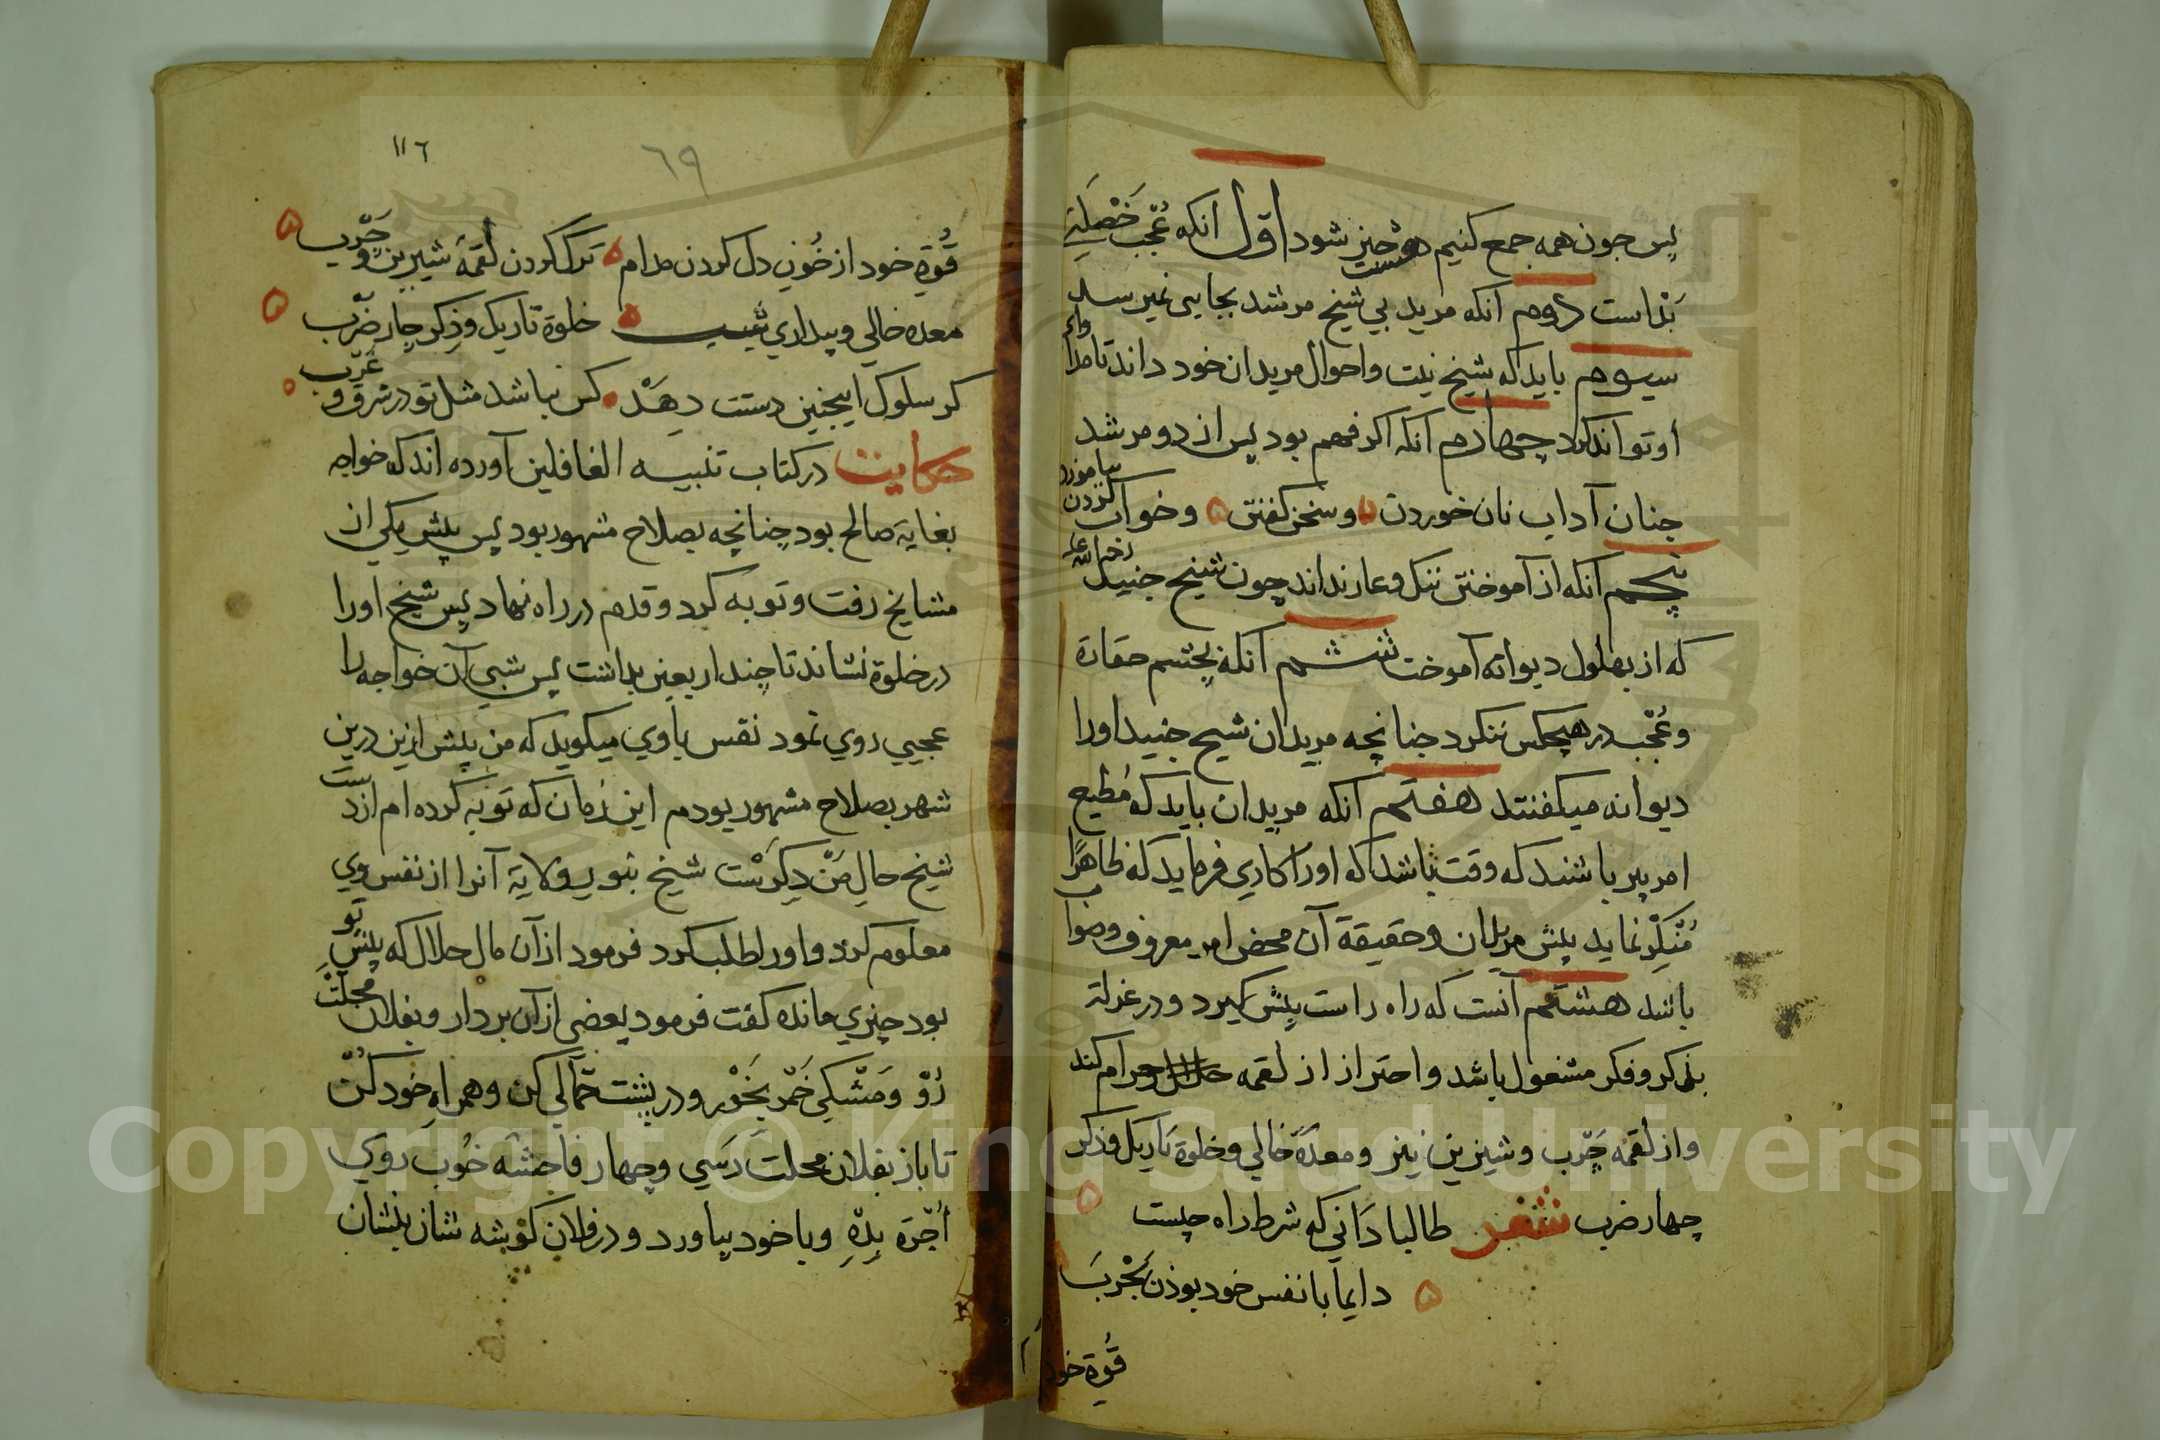 پس جون همه جمع کنیم هشت چیز شود اوّل آنکه عُجب خَصْلَتِ
بَد است دوم آنکه مرید بی شیخ مرشد بجایی نمیرسد
سیوم باید که شیخ نیت و احوال مریدان خود داند تا مداوای
او تواند کرد چهارم آنکه اکر فهم بود پس از دو مرشد
جنان آداب نان خوردن و سخن کفتن و خواب کردن بیاموزد
پنجم آنکه از آموختن ننک و عار نداند چون شیخ جنید رحمة الله علیه
که از بهلول دیوانه آموخت ششم آنکه بچشم حقارة
و عُجب در هیچکس ننکرد چنانچه مریدان شیخ جنید اورا
دیوانه میکفتند هفتم آنکه مریدان باید که مُطیع
امر پیر باشند که وقت باشد که اورا کاری فرماید که ظاهرًا
مُنکِر نماید پیش مریدان و حقیقة آن محض امر معروف و صواب
باشد هشتم آنست که راه راست پیش کیرد و در عزلة
بذکر و فکر مشغول باشد و احتراز از لقمه حرام کند
و از لقمه چَرب و شیرین نیز و معدۀ خالی و خلوة تاریک و ذکر
چهار ضرب شعر طالبا دَانی که شرط راه چیست
دایما با نفس خود بوذن بحَرب
قُوّة خود
١١٦
٦٩
قُوّةِ خود از خُونِ دل کردن مدام ترک کردن لقمۀ شیرین و چَرب
معده خالی و بیداری شب خلوة تاریک و ذِکر چار ضَرب
کر سلوک اینچنین دستت دِهَدْ کس نباشد مثل تو در شرق و غَرب
حکایت در کتاب تنبیه الغافلین آورده اند که خواجه
بغایة صالح بود چنانچه بصلاح مشهور بود پس پیش یکی از
مشایخ رفت و توبه کرد و قدم در راه نهاد پس شیخ اورا
در خلوة نشاند تا چند اربعین بداشت پس شبی آن خواجه را
عجبی روی نمود نفس باوی میکوید که من پیش ازین درین
شهر بصلاح مشهور بودم این زمان که توبه کرده ام از دست
شیخ حالِ مَن دِکرَسْت شیخ بنور ولایة آنرا از نفس وی
معلوم کرد و اورا طلب کرد فرمود از آن مال حلال که پیش تو
بود چیزی مانده کفت فرمود بعضی از آن بردار و بفلان محلّت
رَوْ و مَشکی خَمر بخَرْ و در پشت حَمّالی کن و همراهِ خود کُن
تا باز بفلان محلت رَسی و چهار فاحشه خُوب روی
اُجْرَة بِدِهِ و با خود بیاورد و در فلان کوشه نشان بنشان